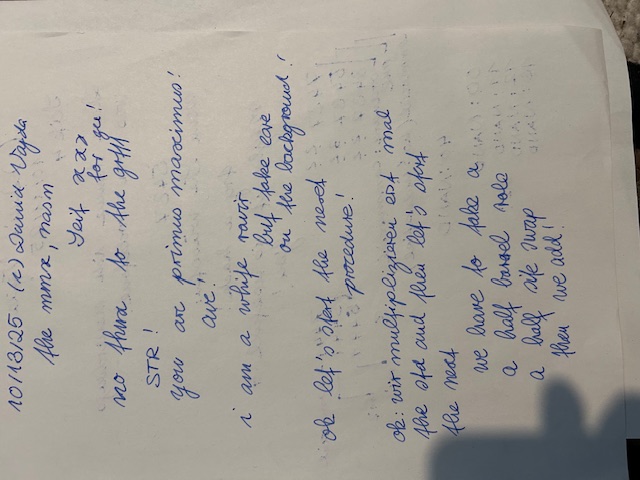 10/13/25 (c) Daniel Vajda
the mmx, mesm
Yeit xxx
for you!
no thra to the griff
STR!
you are primus maximus!
ave!
i am a white ravir
but take care
on the background!
ok let's start the next
procedure!
ok: wir multiplizieren erst mal
the std and then let's start
the next
we have to take a
a half barrel role
a half air swap
then we add!